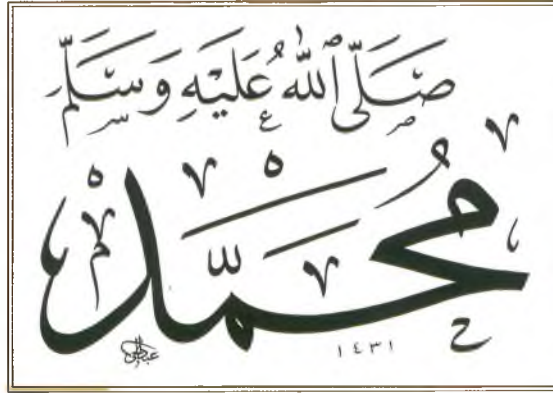 صَلَّى اللهُ عَلَيْهِ وَسَلَّمَ
مُحَمَّد
١٤٣١